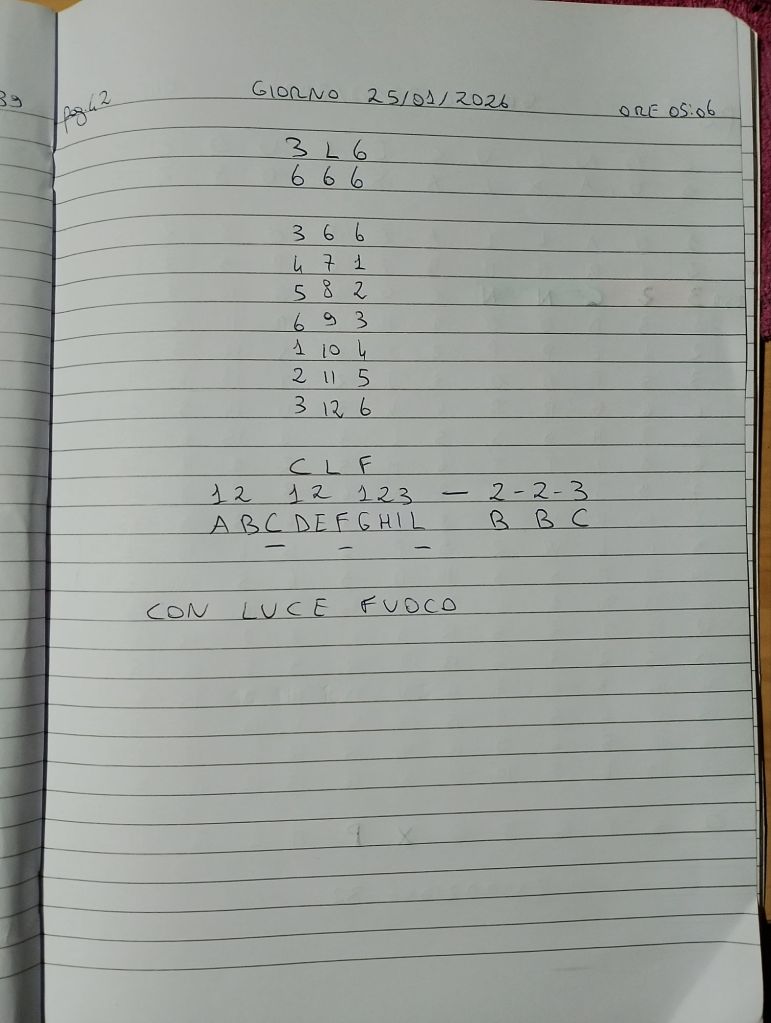 39
pag.42 GIORNO 25/01/2026 ORE 05:06
3 L 6
6 6 6
3 6 6
4 7 1
5 8 2
6 9 3
1 10 4
2 11 5
3 12 6
C L F
12 12 123 — 2-2-3
ABCDEFGHIL B B C
CON LUCE FUOCO